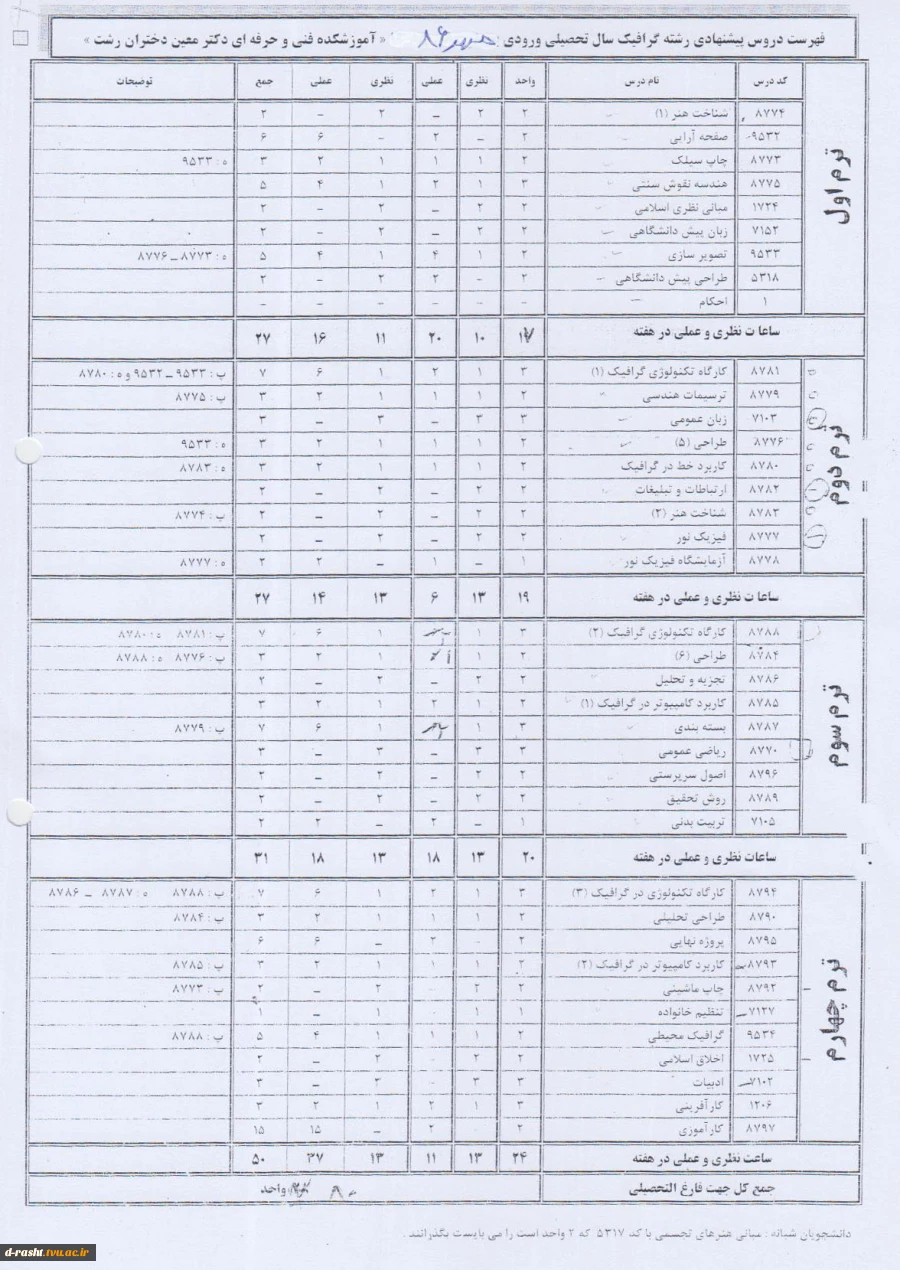 فهرست دروس پیشنهادی رشته گرافیک سال تحصیلی ورودی : مهر ۸۶ « آموزشکده فنی و حرفه ای دکتر معین دختران رشت »
کد درس نام درس واحد نظری عملی نظری عملی جمع توضیحات
ترم اول
۸۷۷۴ شناخت هنر (۱) ۲ ۲ – ۲ – ۲
۹۵۳۲ صفحه آرایی ۲ – ۲ – ۶ ۶
۸۷۷۳ چاپ سیلک ۲ ۱ ۱ ۱ ۲ ۳ ه : ۹۵۳۳
۸۷۷۵ هندسه نقوش سنتی ۳ ۱ ۲ ۱ ۴ ۵
۱۷۲۴ مبانی نظری اسلامی ۲ ۲ – ۲ – ۲
۷۱۵۲ زبان پیش دانشگاهی ۲ ۲ – ۲ – ۲
۹۵۳۳ تصویر سازی ۲ ۱ ۴ ۱ ۴ ۵ ه : ۸۷۷۳ – ۸۷۷۶
۵۳۱۸ طراحی پیش دانشگاهی ۲ – ۲ ۲ – ۲
۱ احکام – – – – – –
ساعات نظری و عملی در هفته ۱۷ ۱۰ ۲۰ ۱۱ ۱۶ ۲۷
ترم دوم
۸۷۸۱ کارگاه تکنولوژی گرافیک (۱) ۳ ۱ ۲ ۱ ۶ ۷ پ : ۹۵۳۳ – ۹۵۳۲ و ه : ۸۷۸۰
۸۷۷۹ ترسیمات هندسی ۲ ۱ ۱ ۱ ۲ ۳ پ : ۸۷۷۵
۷۱۰۳ زبان عمومی ۳ ۳ – ۳ – ۳
۸۷۷۶ طراحی (۵) ۲ ۱ ۱ ۱ ۲ ۳ ه : ۹۵۳۳
۸۷۸۰ کاربرد خط در گرافیک ۲ ۱ ۱ ۱ ۲ ۳ ه : ۸۷۸۳
۸۷۸۲ ارتباطات و تبلیغات ۲ ۲ – ۲ – ۲
۸۷۸۳ شناخت هنر (۲) ۲ ۲ – ۲ – ۲ پ : ۸۷۷۴
۸۷۷۷ فیزیک نور ۲ ۲ – ۲ – ۲
۸۷۷۸ آزمایشگاه فیزیک نور ۱ – ۱ – ۲ ۲ ه : ۸۷۷۷
ساعات نظری و عملی در هفته ۱۹ ۱۳ ۶ ۱۳ ۱۴ ۲۷
ترم سوم
۸۷۸۸ کارگاه تکنولوژی گرافیک (۲) ۳ ۱ ۱ ۶ ۷ پ : ۸۷۸۱ ه : ۸۷۸۰
۸۷۸۴ طراحی (۶) ۲ ۱ ۱ ۲ ۳ پ : ۸۷۷۶ ه : ۸۷۸۸
۸۷۸۶ تجزیه و تحلیل ۲ ۲ – ۲ – ۲
۸۷۸۵ کاربرد کامپیوتر در گرافیک (۱) ۲ ۱ ۲ ۱ ۲ ۳
۸۷۸۷ بسته بندی ۳ ۱ ۱ ۶ ۷ پ : ۸۷۷۹
۸۷۷۰ ریاضی عمومی ۳ ۳ – ۳ – ۳
۸۷۹۶ اصول سرپرستی ۲ ۲ – ۲ – ۲
۸۷۸۹ روش تحقیق ۲ ۲ – ۲ – ۲
۷۱۰۵ تربیت بدنی ۱ – ۲ – ۲ ۲
ساعات نظری و عملی در هفته ۲۰ ۱۳ ۱۸ ۱۳ ۱۸ ۳۱
ترم چهارم
۸۷۹۴ کارگاه تکنولوژی در گرافیک (۳) ۳ ۱ ۲ ۱ ۶ ۷ پ : ۸۷۸۸ ه : ۸۷۸۷ – ۸۷۸۶
۸۷۹۰ طراحی تحلیلی ۲ ۱ ۱ ۱ ۲ ۳ پ : ۸۷۸۴
۸۷۹۵ پروژه نهایی ۲ – ۲ – ۶ ۶
۸۷۹۳ کاربرد کامپیوتر در گرافیک (۲) ۲ ۱ ۱ ۱ ۲ ۳ پ : ۸۷۸۵
۸۷۹۲ چاپ ماشینی ۲ ۲ – ۲ – ۲ پ : ۸۷۷۳
۷۱۲۷ تنظیم خانواده ۱ ۱ – ۱ – ۱
۹۵۳۴ گرافیک محیطی ۲ ۱ ۱ ۱ ۴ ۵ پ : ۸۷۸۸
۱۷۲۵ اخلاق اسلامی ۲ ۲ ۲ – ۲
۷۱۰۲ ادبیات ۳ ۳ ۳ – ۳
۱۲۰۶ کارآفرینی ۳ ۱ ۲ ۱ ۲ ۳
۸۷۹۷ کارآموزی ۲ ۲ – ۱۵ ۱۵
ساعت نظری و عملی در هفته ۲۴ ۱۳ ۱۱ ۱۳ ۳۷ ۵۰
جمع کل جهت فارغ التحصیلی ۸۰ واحد
دانشجویان شبانه : مبانی هنرهای تجسمی با کد ۵۳۱۷ که ۲ واحد است را می بایست بگذرانند .
d-rasht.tvu.ac.ir